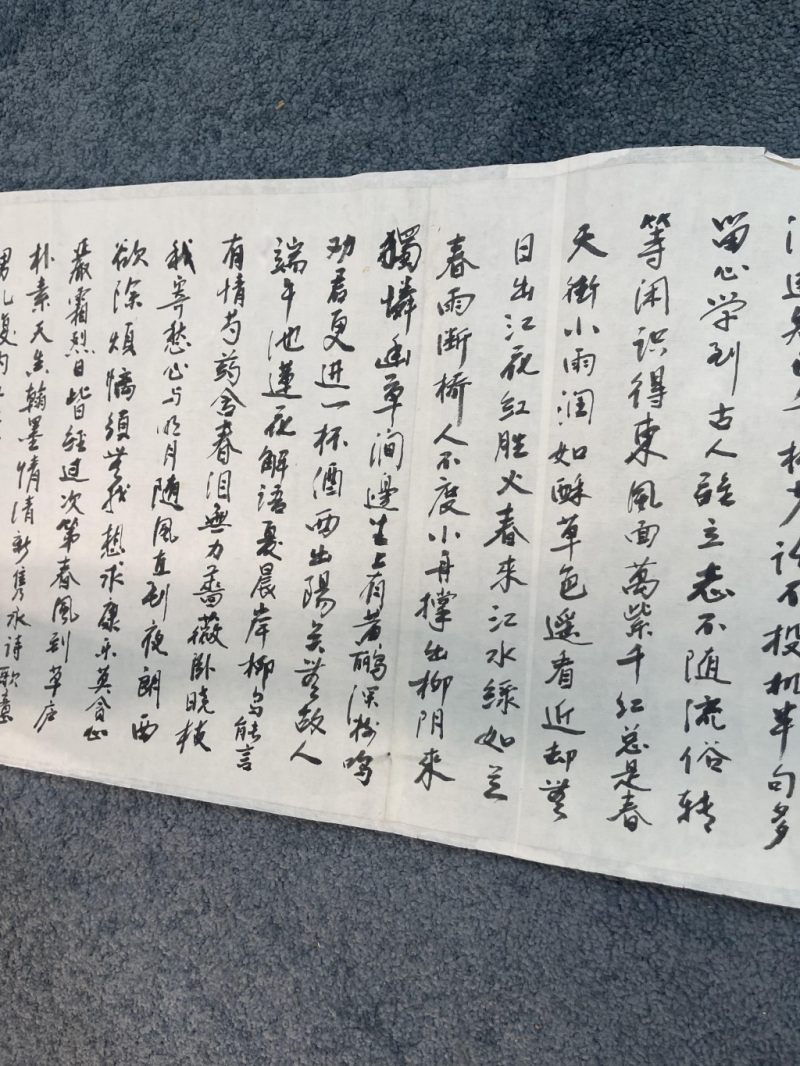 不投机半句多
留心学到古人难立志不随流俗转
等闲识得東風面萬紫千红总是春
天街小雨润如酥草色遥看近却無
日出江花红胜火春来江水绿如兰
春雨断桥人不度小舟撑出柳阴来
獨憐幽草涧邊生上有黄鹂深树鸣
劝君更进一杯酒西出陽关無故人
端午池蓮花解語夏晨岸柳鸟能言
有情芍药含春泪無力蔷薇卧晓枝
我寄愁心与明月随風直到夜朗西
欲除烦恼须無我想求康乐莫贪心
嚴霜烈日皆经过次第春風到草庐
朴素天真翰墨情清新隽永诗歌意